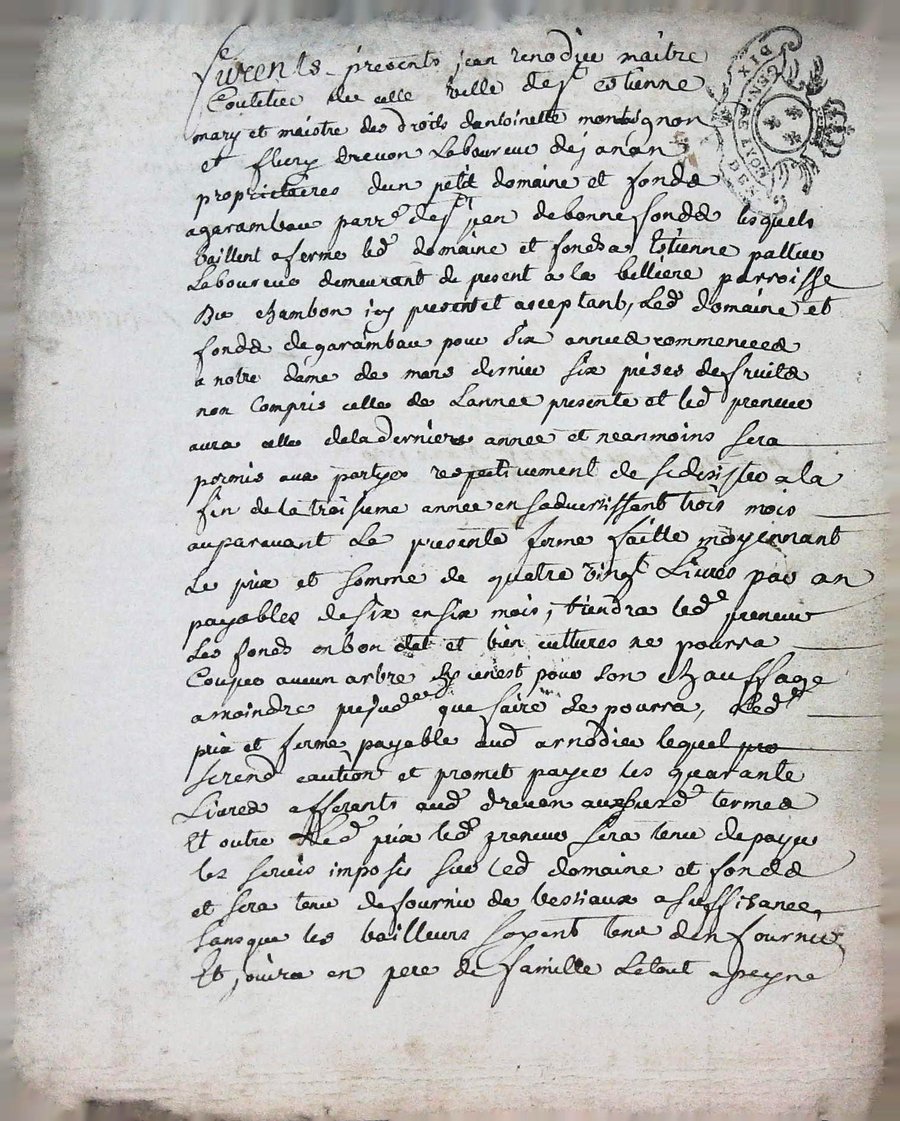 furent presents jean renodier maitre
Coutelier de cette ville de st estienne
mary et maistre des droits dantoinette montagnon
et fleury drevon Laboureur de janan
proprietaires dun petit domaine et fonds
agarambau parre de st jean debonnefonds lesquels
baillent a ferme led domaine et fonds a Estienne pallier
Laboureur demeurant de present a la belliere parroisse
Du chambon icy present et aceptant, Led domaine et
fonds de garambau pour six années commencees
a notre dame de mars dernier six prises de fruits
non Compris celle de Lannee presente et led preneur
aura celle deladerniere annee et neanmoins sera
permis aux partyes respectivement de sedesister a la
fin de la troisieme annee en sadvertissant trois mois
auparavant La presente ferme faitte moyennant
Le prix et somme de quatre vingt Livres par an
payables de six en six mois, tiendra led preneur
Les fonds en bon etat et bien cultures ne pourra
Couper aucun arbre sy cenest pour son chauffage
amoindre prejude que faire se pourra, Led
prix et ferme payable aud arnodier lequel
serend caution et promet payer les quarante
Livres afferents aud drevon aux susd termes
Et outre Led prix led preneur sera tenu de payer
les servis imposés sur led domaine et fonds
et sera tenu defournir de bestiaux a suffisance
sans que les bailleurs soyent tenu den fournir
Et jouira en pere de famille Letout a peyne
DIX
DEN
GEN. DE LYON